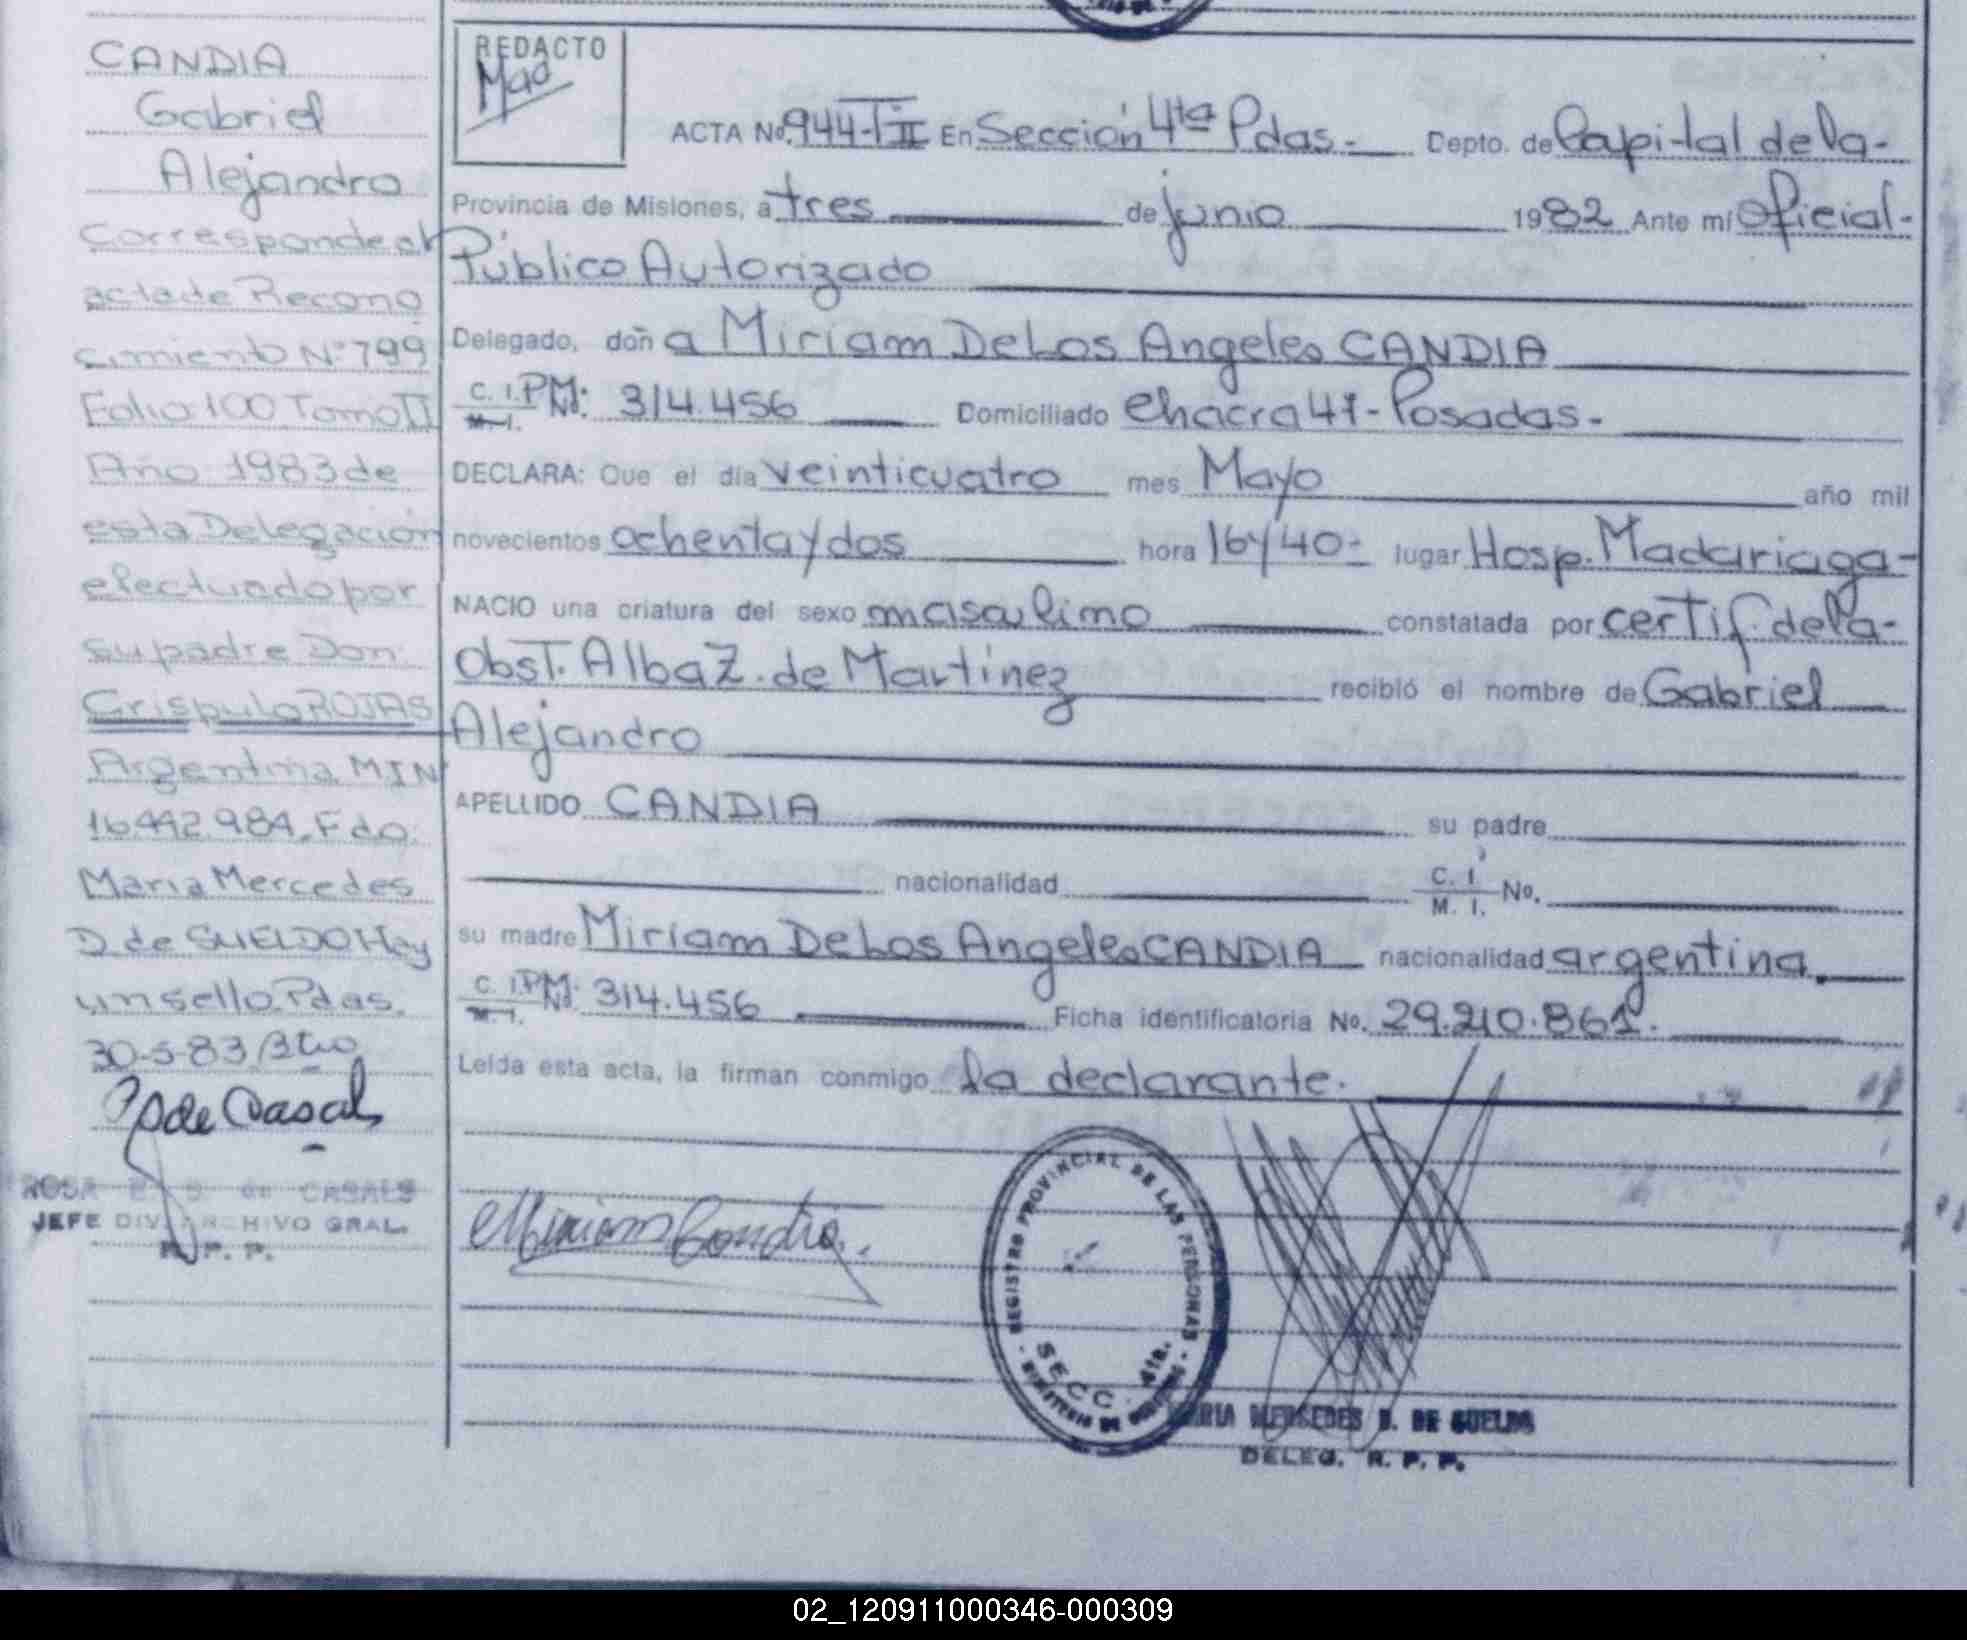 CANDIA
Gabriel
Alejandro
Corresponde al
acta de Recono
cimiento Nº 799
Folio 100 Tomo II
Año 1983 de
esta Delegación
efectuado por
su padre Don:
Crispulo ROJAS
Argentina MIN
16.442.984. Fdo.
Maria Mercedes
D. de SUELDO Hay
un sello. Pdas.
30-5-83
P de Casals
ROSA E. de CASALS
JEFE DIV. ARCHIVO GRAL.
R. P. P.
REDACTO
Mad
ACTA No. 944-T II En Sección 4ta Pdas.- Depto. de Capital de la-
Provincia de Misiones, a tres de junio 1982 Ante mí Oficial-
Público Autorizado
Delegado, doña Miriam De Los Angeles CANDIA
C. I. PM: 314.456 Domiciliado Chacra 41- Posadas-
M. I.
DECLARA: Que el día veinticuatro mes Mayo año mil
novecientos ochenta y dos hora 16y40- lugar Hosp. Madariaga-
NACIO una criatura del sexo masculino constatada por certif. de la-
Obst. Alba Z. de Martinez recibió el nombre de Gabriel
Alejandro
APELLIDO CANDIA su padre
nacionalidad C. I. M. I. No.
su madre Miriam De Los Angeles CANDIA nacionalidad argentina.
C. I. PM: 314.456 Ficha identificatoria No. 29.210.861.
M. I.
Leída esta acta, la firman conmigo la declarante.
Miriam Candia.
REGISTRO PROVINCIAL DE LAS PERSONAS
SECC. 4ta.
MINISTERIO DE
MARIA MERCEDES D. DE SUELDO
DELEG. R. P. P.
02_120911000346-000309